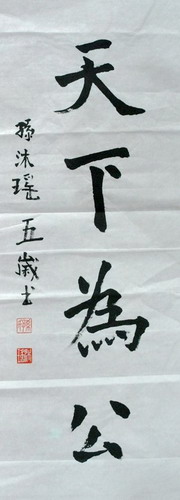 天下為公
孫沐瑶五歲书